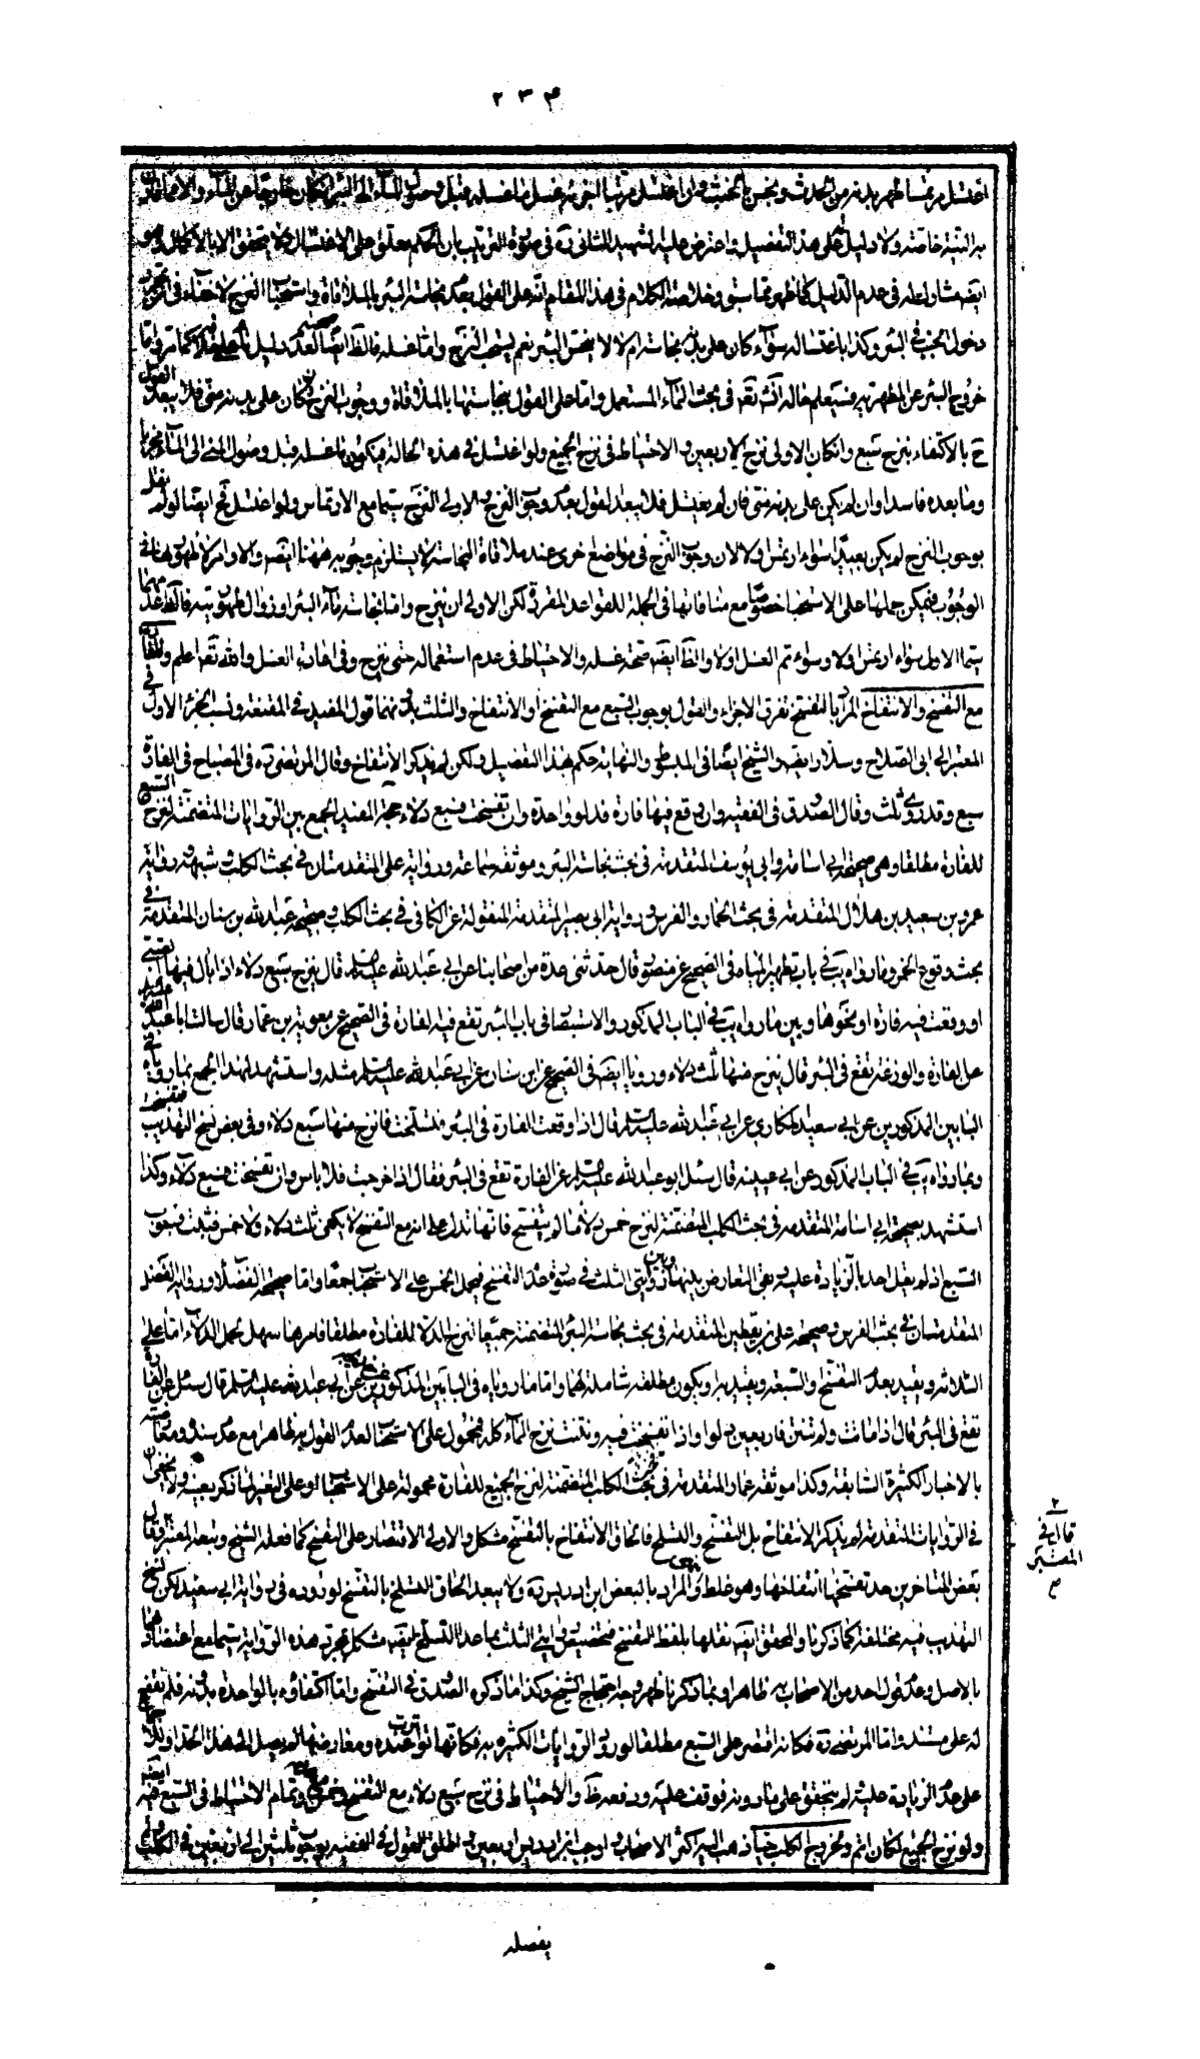 ٢٣۴
اغتسل مرتمسا طهر بدنه من الحدث ونجس بالخبث وان اغتسل مرتبا اجزئه غسل ما غسله قبل وصول الماء الى البئر ان كان خارجا عن الماء والا فما قارن
به النية خاصة ولا دليل على هذا التفصيل واعترض عليه الشهيد الثاني ره في صورة الترتيب بان الحكم معلق على الاغتسال ولا يتحقق الا بالاكمال وهو
ايضه مشاركله في عدم الدليل كما ظهر مما سبق وخلاصة الكلام في هذا المقام انه على القول بعدم نجاسة البئر بالملاقاة واستحباب النزح لا خفاء في
دخول الجنب في البئر وكذا باغتساله سواء كان على بدنه نجاسة ام لا لا ينجس البئر نعم يستحب النزح واما غسله فالظ ايضا صحته لعدم دليل على خلافه كما مر واما
خروج البئر عن المطهرية فستعلم حاله انشه تعه في بحث الماء المستعمل واما على القول بنجاستها بالملاقاة ووجوب النزح فان كان على بدنه منى فلا يبعد القول
ح بالاكتفاء بنزح سبع وان كان الاولى نزح الاربعين والاحتياط في نزح الجميع ولو اغتسل في هذه الحالة فيكون ما غسله قبل وصول المنى الى الماء مجزيا
وما بعده فاسدا وان لم يكن على بدنه منى فان لم يغتسل فلا يبعد القول بعدم وجوب النزح والاولى النزح سيما مع الارتماس ولو اغتسل فح ايضا لو لم نقل
بوجوب النزح لم يكن بعيدا سواء ارتمس او لا لان وجوب النزح في مواضع اخرى عند ملاقاة النجاسة لا يستلزم وجوبه ههنا ايضه والاوامر لا ظهور لها في
الوجوب فيمكن حملها على الاستحباب خصوصا مع منافاتها في الجملة للقواعد المقررة لكن الاولى ان ينزح واما نجاسة ماء البئر او زوال طهوريته فالظ عدمهما
سيما الاول سواء ارتمس او لا وسواء تم الغسل او لا والظ ايضه صحة غسله والاحتياط في عدم استعماله حتى ينزح وفي اعادة الغسل والله تعه اعلم وللفأرة
مع التفسخ والانتفاخ المراد بالتفسخ تفرق الاجزاء والقول بوجوب السبع مع التفسخ او الانتفاخ والثلث بدونهما قول المفيد في المقنعة ونسب الجزء الاول في
المعتبر الى ابى الصلاح وسلار ايضه والشيخ ايضا في المبسوط والنهاية حكم بهذا التفصيل ولكن لم يذكر الانتفاخ وقال المرتضى ره في المصباح في الفارة
سبع وقد روى ثلث وقال الصدوق في الفقيه وان وقع فيها فارة فدلو واحدة وان تفسخت فسبع دلاء حجة المفيد الجمع بين الروايات المتضمنة لنزح السبع
للفارة مطلقا وهي صحيحة ابى اسامة وابى يوسف المتقدمة في بحث نجاسة البئر وموثقة سماعة ورواية على المتقدمتان في بحث الكلب وشبهه ورواية
عمرو بن سعيد بن هلال المتقدمة في بحث الحمار والفرس ورواية ابى بصير المتقدمة المنقولة عن الكافي في بحث الكلب وصحيحة عبد الله بن سنان المتقدمة في
بحث وقوع الخمر وما رواه يب في باب تطهير المياه في الصحيح عن منصور قال حدثنى عدة من اصحابنا عن ابى عبد الله عليه السلم قال ينزح سبع دلاء اذا بال فيها
او وقعت فيه فارة او نحوها وبين ما رواه يب في الباب المذكور والاستبصار في باب البئر تقع فيه الفارة في الصحيح عن معوية بن عمار قال سالت ابا عبد الله
عن الفارة والوزغة تقع في البئر قال ينزح منها ثلث دلاء ورويا ايضه في الصحيح عن ابن سنان عن ابى عبد الله عليه السلم مثله واستشهد لهذا الجمع بما رواه في
البابين المذكورين عن ابى سعيد المكارى عن ابى عبد الله عليه السلم قال اذا وقعت الفارة في البئر فتسلخت فانزح منها سبع دلاء وفي بعض نسخ التهذيب فتفسخت
وبما رواه يب في الباب المذكور عن ابى عيينة قال سئل ابو عبد الله عليه السلم عن الفارة تقع في البئر فقال اذا خرجت فلا باس وان تفسخت فسبع دلاء وكذا
استشهد بصحيحة ابى اسامة المتقدمة في بحث الكلب المتضمنة لنزح خمس دلاء ما لم يتفسخ فانها تدل على انه مع التفسخ لا يكفى ثلث دلاء ولا خمس فيثبت وجوب
السبع اذ لم يقل احد بالزيادة عليه وبقى التعارض بينها وبين روايتى الثلث في صورة عدم التفسخ فيحمل الخمس على الاستحباب جمعا واما صحيحة الفضلاء ورواية الفضل
المتقدمتان في بحث الفرس وصحيحة على بن يقطين المتقدمة في بحث نجاسة البئر المتضمنة جميعا لنزح الدلاء للفارة مطلقا فامرها سهل بحمل الدلاء اما على
الثلاثة ويقيد بعدم التفسخ او السبعة ويقيد به او يكون مطلقة شاملة لهما واما ما روياه في البابين المذكورين عن ابى عبد الله عليه السلم قال سئل عن الفارة
تقع في البئر قال اذا ماتت ولم تنتن فاربعين دلوا واذا تفسخت فيه ونتنت نزح الماء كله فمحمول على الاستحباب لعدم القول به ظاهرا مع عدم سنده ومعارضته
بالاخبار الكثيرة السابقة وكذا موثقة عمار المتقدمة في بحث الكلب المتضمنة لنزح الجميع للفارة محمولة على الاستحباب او على التغير لما ذكر بعينه ولا يخفى ان
في الروايات المتقدمة لم يذكر الانتفاخ بل التفسخ والتسلخ فالحاق الانتفاخ بالتفسخ مشكل والاولى الاقتصار على التفسخ كما فعله الشيخ وتبعه المعتبر وقال
بعض المتاخرين حد تفسخها انتفاخها وهو غلط والمراد بالبعض ابن ادريس ره ولا يبعد الحاق التسلخ بالتفسخ لوروده في رواية ابى سعيد لكن نسخ
التهذيب فيه مختلفة كما ذكرنا والمحقق ايضه نقلها بلفظ التفسخ فتخصيص روايتى الثلث بما عدا التسلخ ايضه مشكل بمجرد هذه الرواية سيما مع اعتضادهما
بالاصل وعدم قول احد من الاصحاب به ظاهرا وبما ذكرنا ظهر وجه احتجاج الشيخ وكذا ما ذكره الصدوق في التفسخ واما اكتفاؤه بالواحدة بدونه فلم نقف
له على مستند واما المرتضى ره فكانه اقتصر على السبع مطلقا لورود الروايات الكثيرة به فكانها تواترت عنده ومعارضها لم يصل الى هذا الحد
على عدم الزيادة عليه لم يتحقق على ما دونه فوقف عليه ودفعه ظ والاحتياط في نزح سبع دلاء مع التفسخ وتمام الاحتياط في السبع فيه ايضه
ولو نزح الجميع لكان اتم وخروج الكلب حيا ذهب اليه اكثر الاصحاب واوجب ابن ادريس اربعين واطلق القول في الفقيه بوجوب ثلثين الى اربعين في الكلب
٢
قال في
المعتبر
ع
يفصله